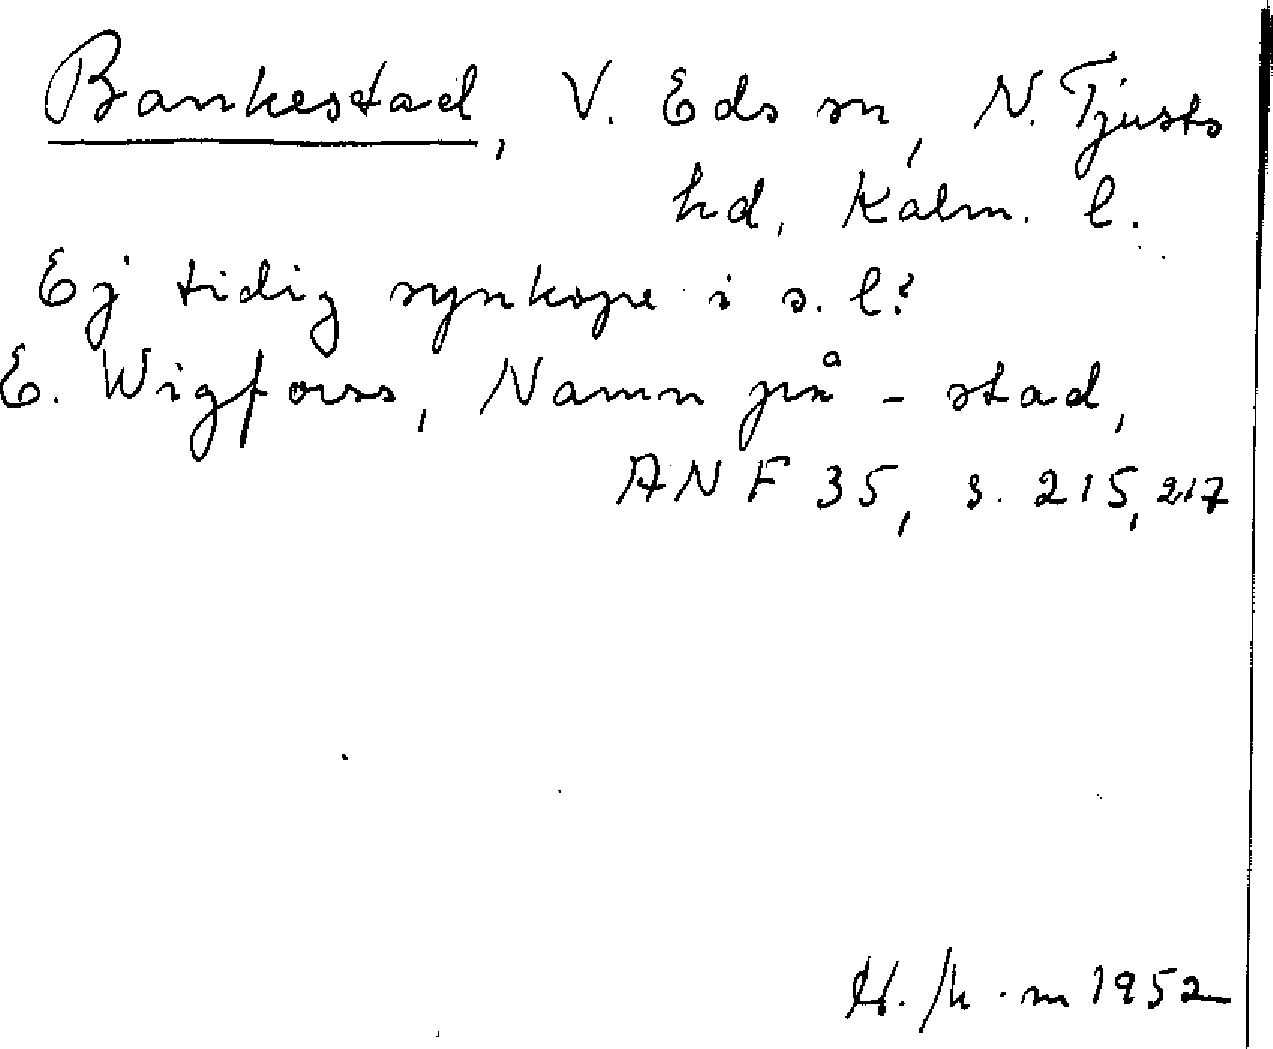 Bankestad, V. Eds sn, N. Tjusts
hd, Kalm. l.
Ej tidig synkope i s. l.?
E. Wigforss, Namn på -stad,
ANF 35, s. 215, 217
1952